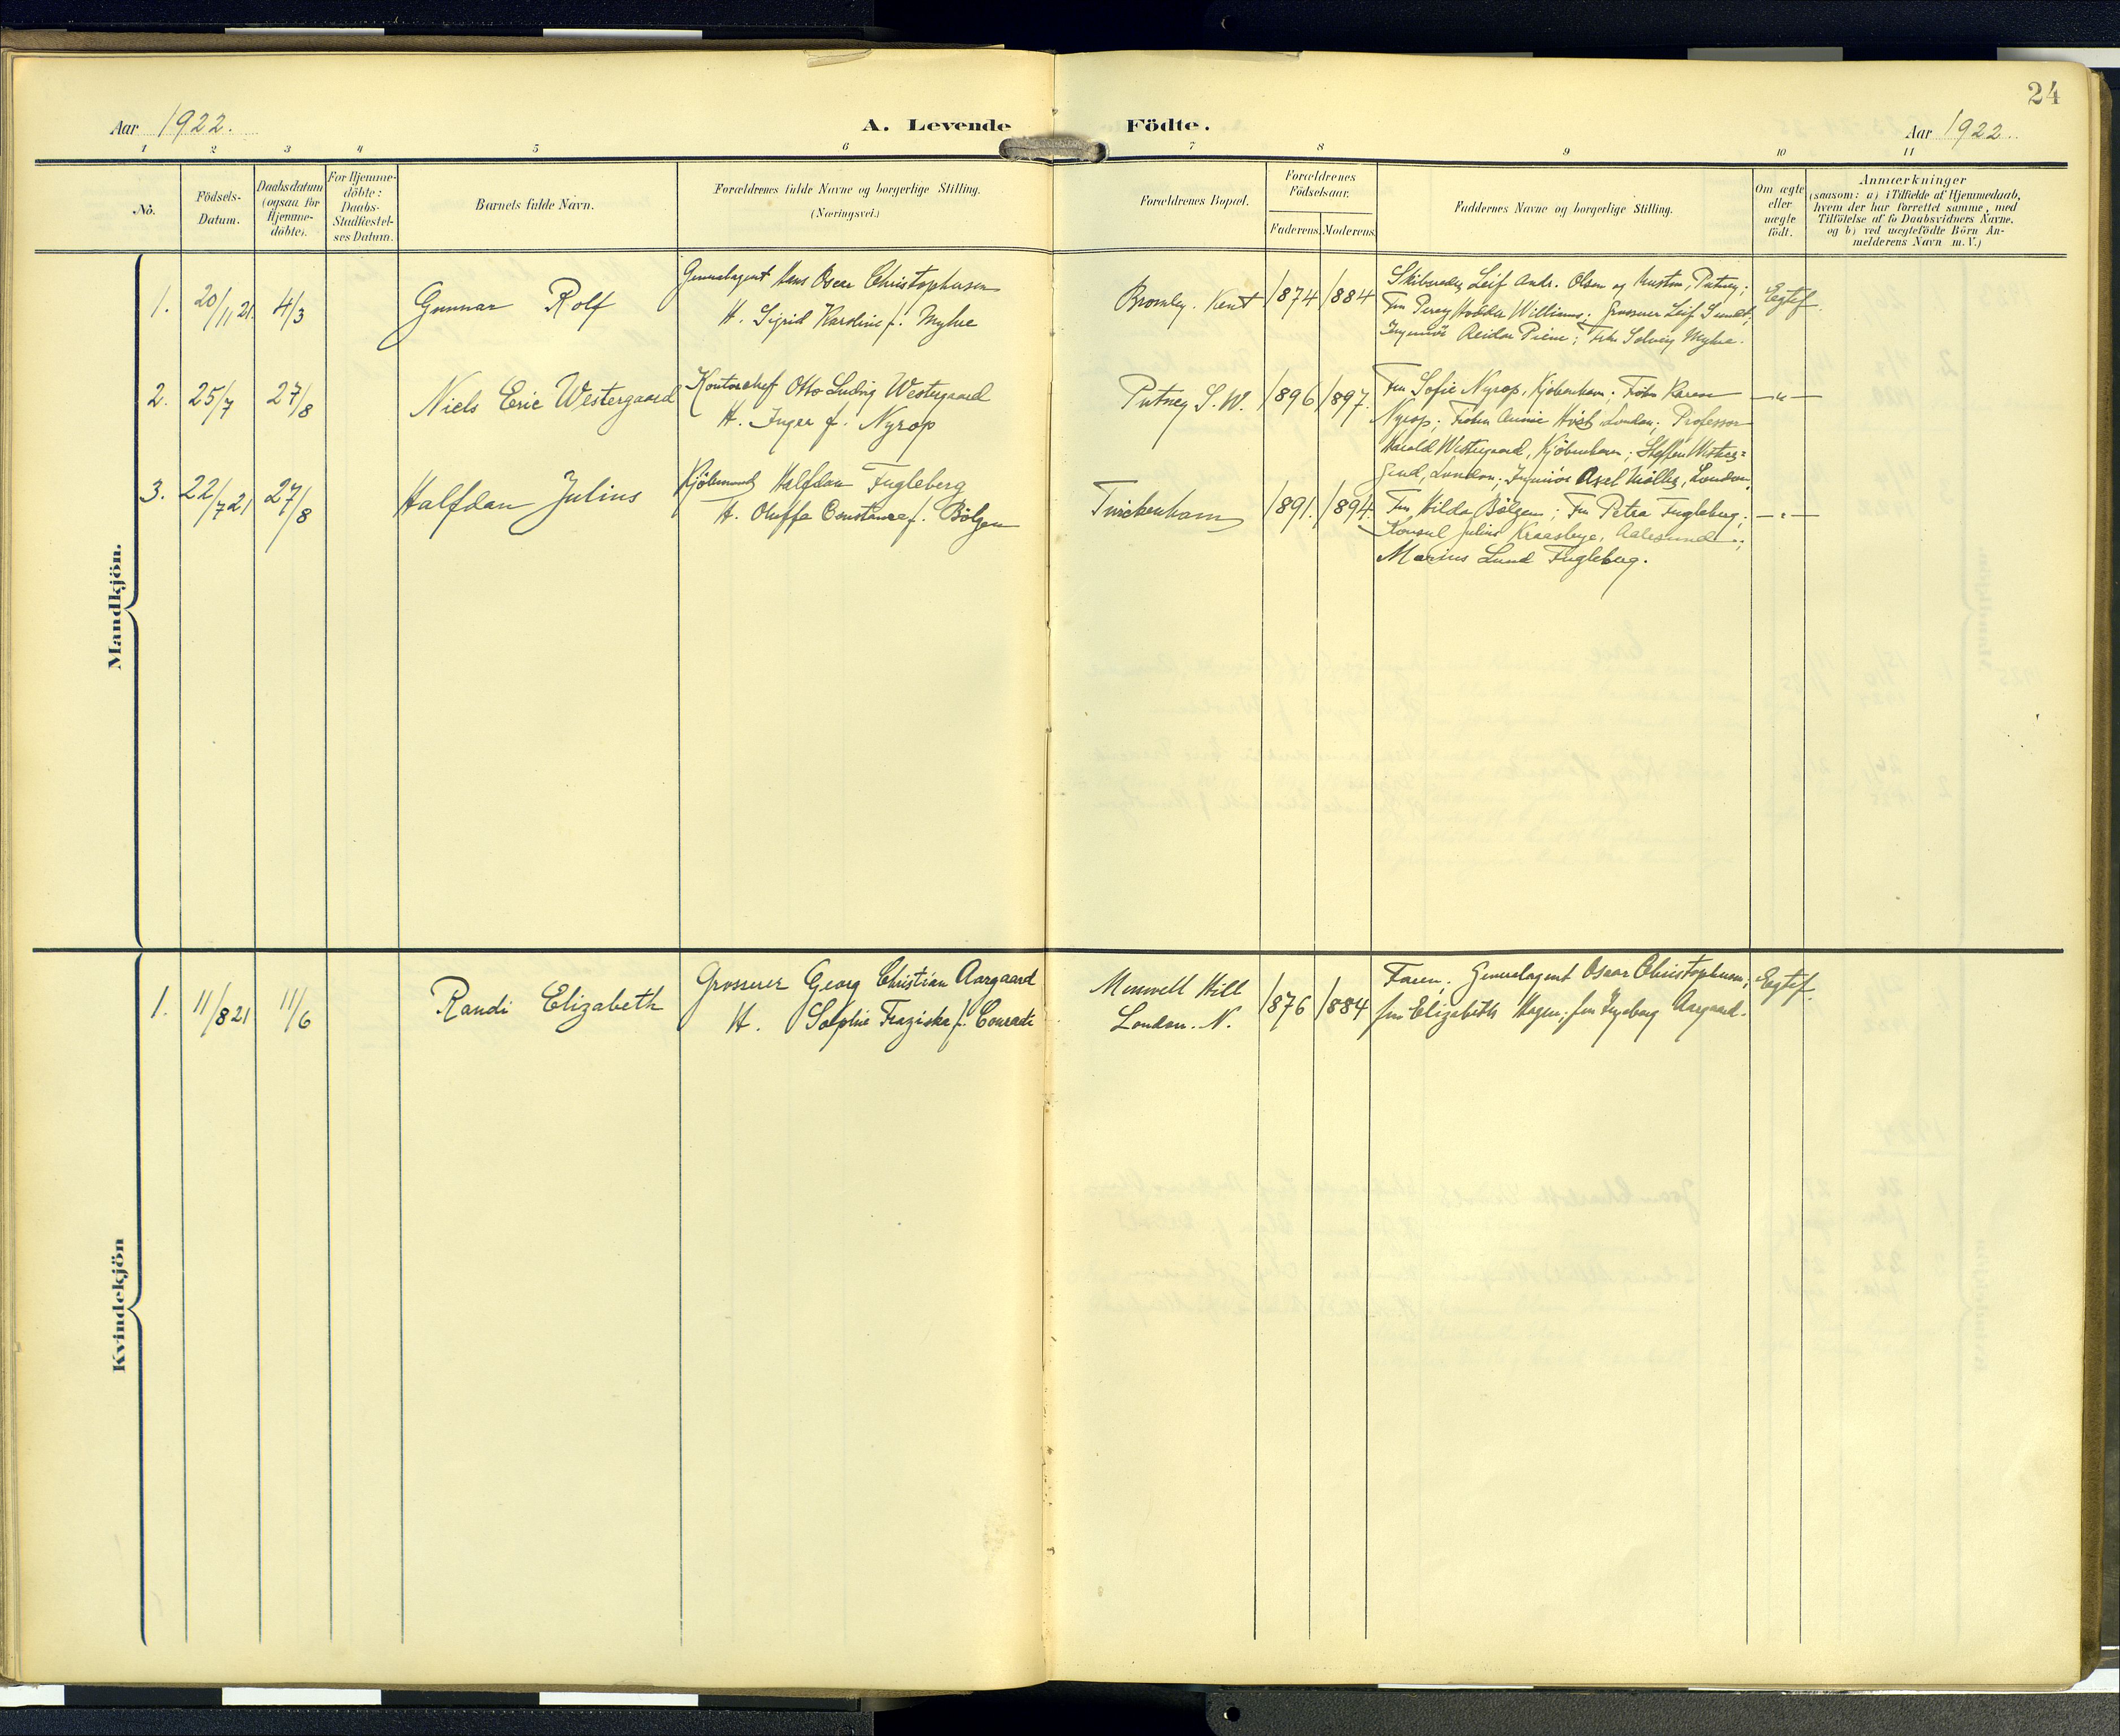 24
Aar 1922.
A. Levende Födte.
Aar 1922.
1 2 3 4 5 6 7 8 9 10 11
No.
Födsels-
Datum.
Daabsdatum
(ogsaa for
Hjemme-
döbte).
For Hjemme-
döbte:
Daabs-
Stadfæstel-
ses Datum.
Barnets fulde Navn.
Forældrenes fulde Navne og borgerlige Stilling.
(Næringsvei.)
Forældrenes Bopæl.
Forældrenes
Födselsaar.
Faderens. Moderens.
Faddernes Navne og borgerlige Stilling.
Om ægte
eller
uægte
födt.
Anmærkninger
(saasom: a) i Tilfælde af Hjemmedaab,
hvem der har forrettet samme, med
Tilföielse af to Daabsvidners Navne,
og b) ved uægtefödte Börn An-
melderens Navn m. V.)
Mandkjön.
1. 20/11 21. 4/3
Gunnar Rolf
Generalagent Hans Oscar Christophersen
H. Sigrid Kardine f. Myhre
Bromley. Kent 1874 1884
Skibsreder Leif Andr. Olsen og Hustru, Putney;
Fru Percy Hodder Williams; Grosserer Leif Sundt;
Ingeniör Reidar Piene; Frk. Solveig Myhre.
Egtef.
2. 25/7 27/8
Niels Eric Westergaard
Kontorchef Otto Ludvig Westergaard
H. Inger f. Nyrop
Putney S.W. 1896 1897.
Fru Sofie Nyrop, Kjöbenhavn; Fröken Karen
Nyrop; Fröken Annie Höst, London; Professor
Harald Westergaard, Kjöbenhavn; Steffen Wester=
gaard, London; Ingeniör Axel Möller, London.
— " —
3. 22/7 21 27/8
Halfdan Julius
Kjöbmand Halfdan Fugleberg
H. Oluffa Constance f. Bölgen
Twickenham 1891. 1894.
Fru Hilda Bölgen; Fru Petra Fugleberg;
Konsul Julius Kraasbye, Aalesund;
Marius Lund Fugleberg.
— " —
Kvindekjön
1. 11/8 21 11/6
Randi Elizabeth
Grosserer Georg Christian Aargaard
H. Sophie Fraziska f. Conradi
Muswell Hill
London. N.
1876 1884
Faren; Generalagent Oscar Christophersen;
fru Elizabeth Hagen; fru Ingeborg Aargaard.
Egtef.